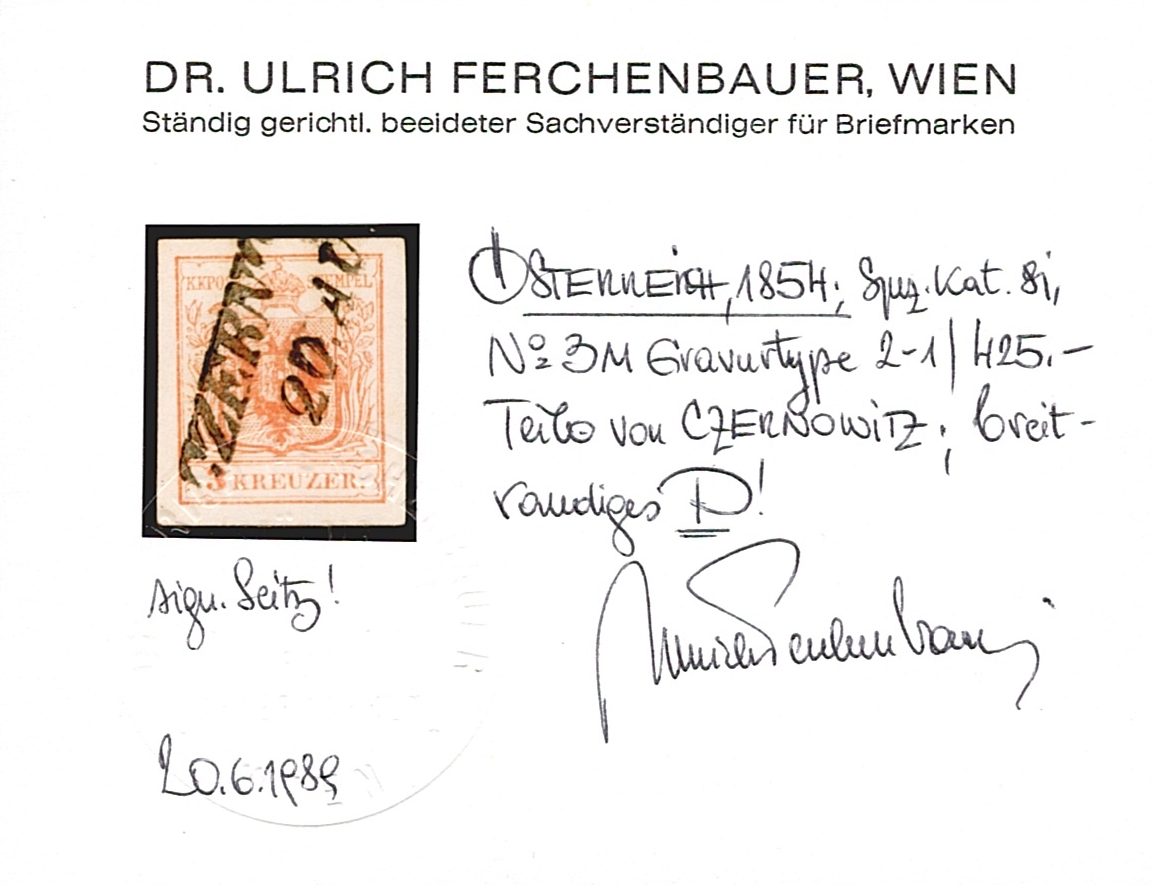 DR. ULRICH FERCHENBAUER, WIEN
Ständig gerichtl. beeideter Sachverständiger für Briefmarken
KKPO STEMPEL
CZERN
20. 4
3 KREUZER.
ÖSTERREICH, 1854; Spez. Kat. 8i,
No 3M Gravurtype 2-1 / 425.-
Teile von CZERNOWITZ; breit-
randiges P!
sign. Seitz!
20.6.1989